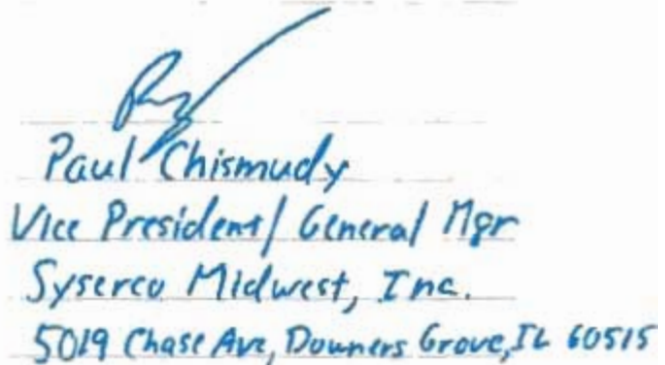 Paul Chismudy
Vice President/ General Mgr
Syserco Midwest, Inc.
5019 Chase Ave, Downers Grove, IL 60515